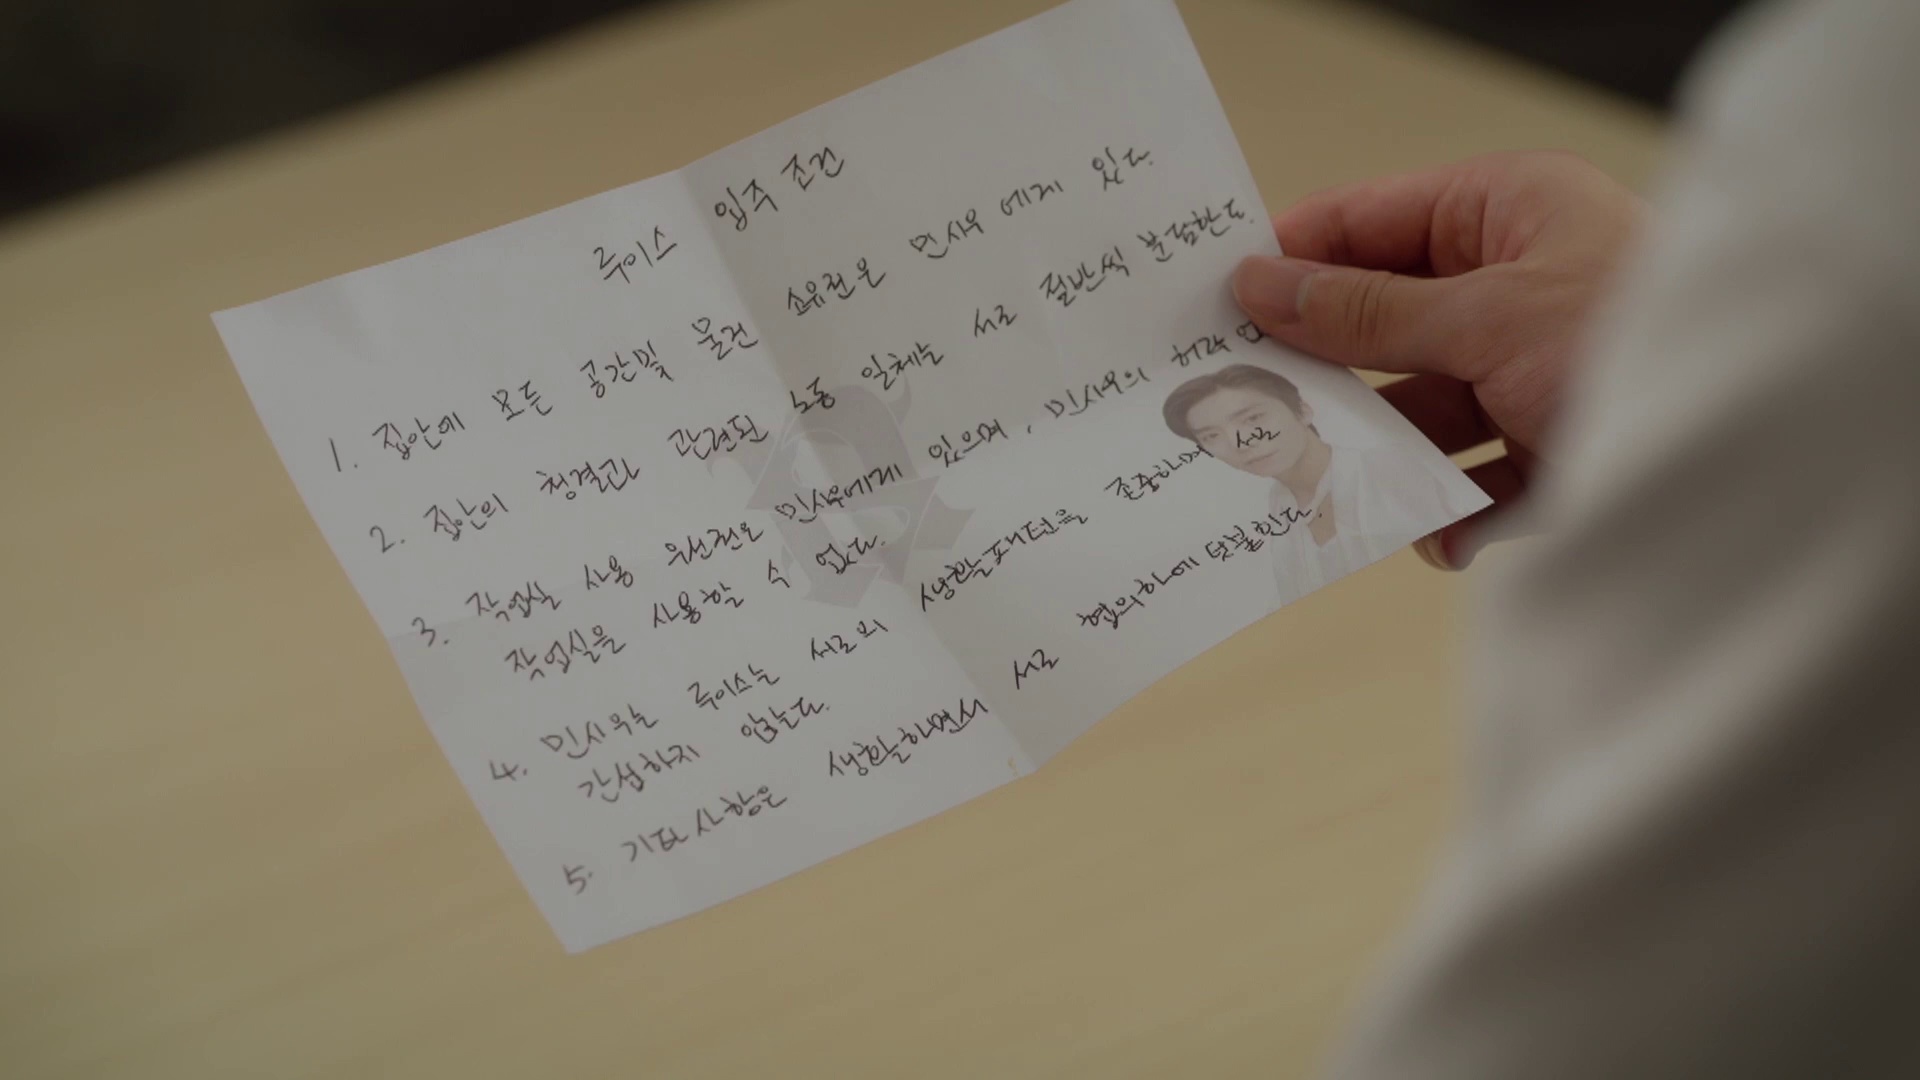 루이스 입주 조건
1. 집안에 모든 공간및 물건 소유권은 민시우 에게 있다.
2. 집안의 청결과 관련된 노동 일체는 서로 절반씩 분담한다.
3. 작업실 사용 우선권은 민시우에게 있으며, 민시우의 허락
작업실을 사용할 수 없다.
4. 민시우는 루이스는 서로의 생활패턴을 존중하며 서로
간섭하지 않는다.
5. 기타사항은 생활하면서 서로 협의하에 덧붙힌다.